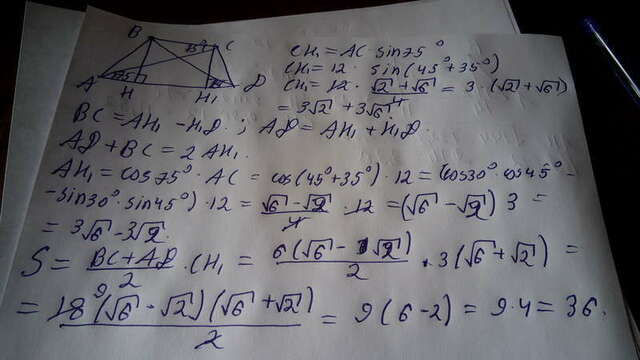 B
75° C
A 75 D
H H₁
CH₁ = AC sin75°
CH₁ = 12 · sin(45° + 35°)
CH₁ = 12 · (√2 + √6)/4 = 3 · (√2 + √6)
= 3√2 + 3√6
BC = AH₁ - H₁D ; AD = AH₁ + H₁D.
AD + BC = 2 AH₁.
AH₁ = cos75° · AC = cos(45° + 35°) · 12 = (cos30° · cos45° -
- sin30° · sin45°) · 12 = (√6 - √2)/4 · 12 = (√6 - √2) 3 =
= 3√6 - 3√2.
S = (BC + AD)/2 · CH₁ = 6(√6 - √2)/2 · 3(√6 + √2) =
= 18 9 (√6 - √2)(√6 + √2)/2 = 9(6 - 2) = 9 · 4 = 36.